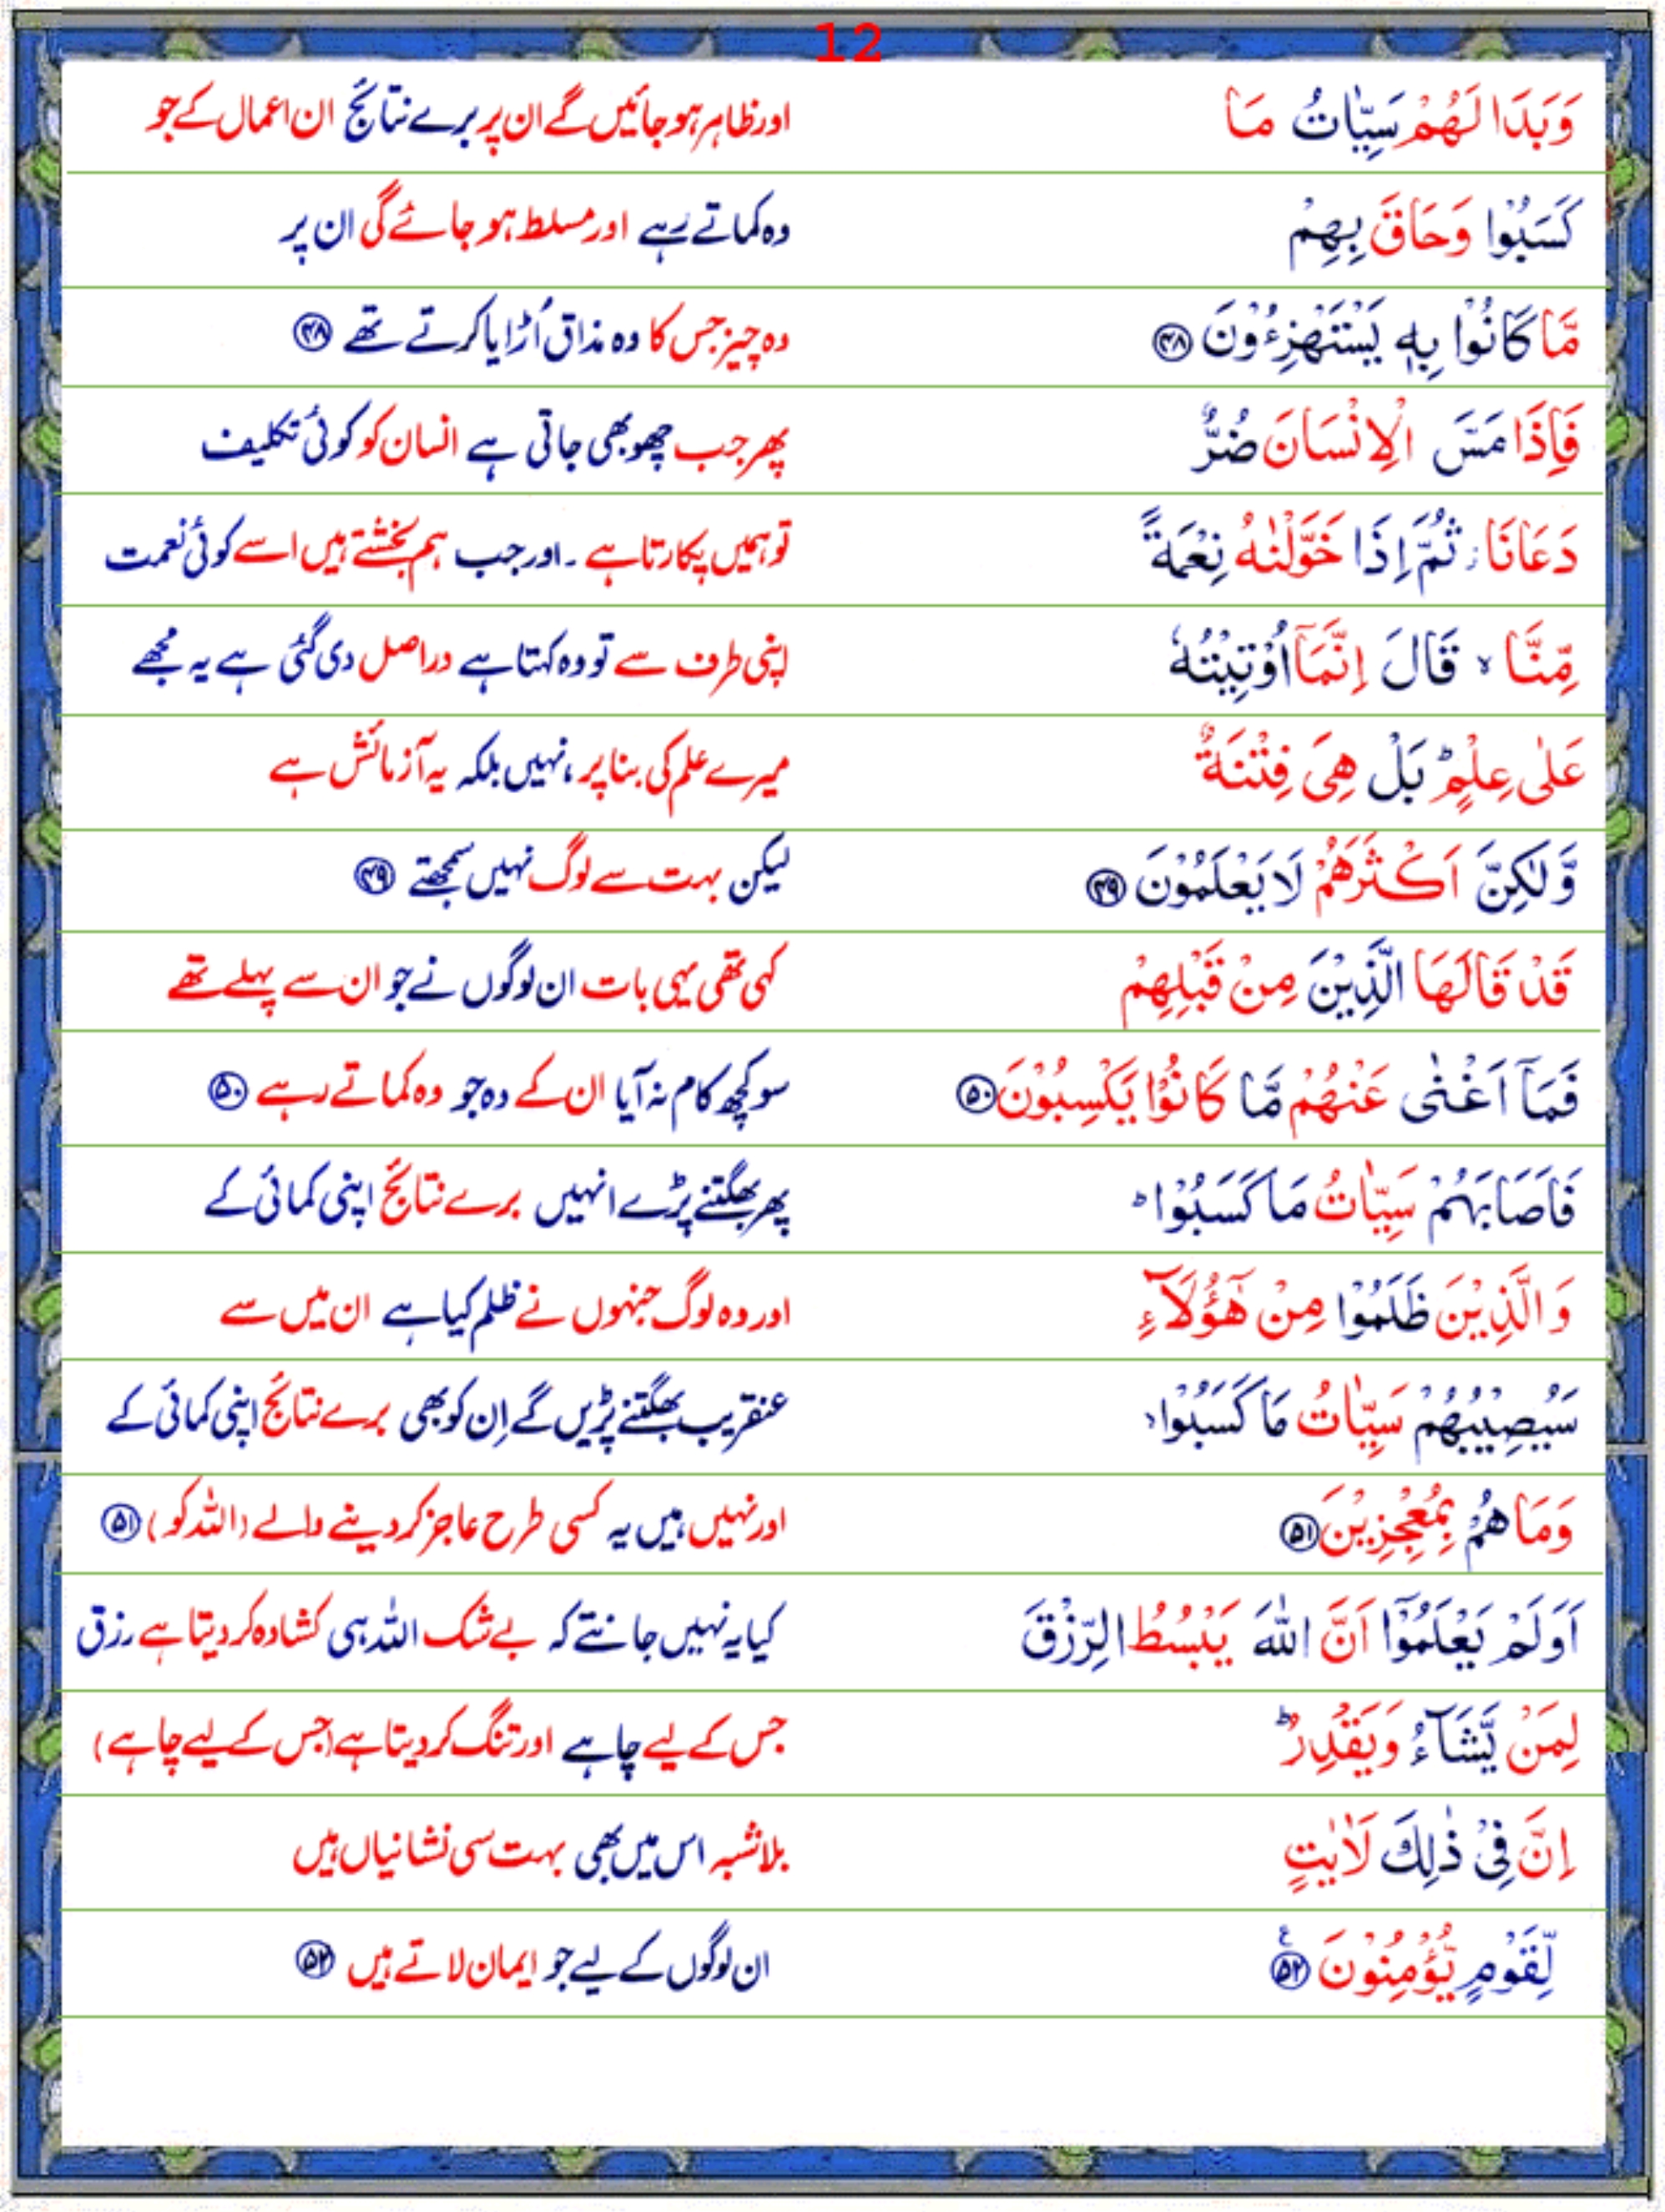 12
وَبَدَا لَهُمْ سَيِّاٰتُ مَا اور ظاہر ہو جائیں گے ان پر برے نتائج ان اعمال کے جو
كَسَبُوْا وَحَاقَ بِهِمْ وہ کماتے رہے اور مسلط ہو جائے گی ان پر
مَّا كَانُوْا بِهٖ يَسْتَهْزِءُوْنَ ﴿۴۸﴾ وہ چیز جس کا وہ مذاق اُڑایا کرتے تھے ﴿۴۸﴾
فَاِذَا مَسَّ الْاِنْسَانَ ضُرٌّ پھر جب چھو بھی جاتی ہے انسان کو کوئی تکلیف
دَعَانَا ز ثُمَّ اِذَا خَوَّلْنٰهُ نِعْمَةً تو ہمیں پکارتا ہے ۔ اور جب ہم بخشتے ہیں اسے کوئی نعمت
مِّنَّا ۙ قَالَ اِنَّمَآ اُوْتِيْتُهٗ اپنی طرف سے تو وہ کہتا ہے دراصل دی گئی ہے یہ مجھے
عَلٰى عِلْمٍ ؕ بَلْ هِىَ فِتْنَةٌ میرے علم کی بنا پر ، نہیں بلکہ یہ آزمائش ہے
وَّلٰكِنَّ اَكْثَرَهُمْ لَا يَعْلَمُوْنَ ﴿۴۹﴾ لیکن بہت سے لوگ نہیں سمجھتے ﴿۴۹﴾
قَدْ قَالَهَا الَّذِيْنَ مِنْ قَبْلِهِمْ کہی تھی یہی بات ان لوگوں نے جو ان سے پہلے تھے
فَمَآ اَغْنٰى عَنْهُمْ مَّا كَانُوْا يَكْسِبُوْنَ ﴿۵۰﴾ سو کچھ کام نہ آیا ان کے وہ جو وہ کماتے رہے ﴿۵۰﴾
فَاَصَابَهُمْ سَيِّاٰتُ مَا كَسَبُوْا ؕ پھر بھگتنے پڑے انہیں برے نتائج اپنی کمائی کے
وَالَّذِيْنَ ظَلَمُوْا مِنْ هٰٓؤُلَآءِ اور وہ لوگ جنہوں نے ظلم کیا ہے ان میں سے
سَيُصِيْبُهُمْ سَيِّاٰتُ مَا كَسَبُوْا ۙ عنقریب بھگتنے پڑیں گے اِن کو بھی برے نتائج اپنی کمائی کے
وَمَا هُمْ بِمُعْجِزِيْنَ ﴿۵۱﴾ اور نہیں ہیں یہ کسی طرح عاجز کر دینے والے (اللہ کو) ﴿۵۱﴾
اَوَلَمْ يَعْلَمُوْٓا اَنَّ اللّٰهَ يَبْسُطُ الرِّزْقَ کیا یہ نہیں جانتے کہ بے شک اللہ ہی کشادہ کر دیتا ہے رزق
لِمَنْ يَّشَآءُ وَيَقْدِرُ ؕ جس کے لیے چاہے اور تنگ کر دیتا ہے (جس کے لیے چاہے)
اِنَّ فِىْ ذٰلِكَ لَاٰيٰتٍ بلاشبہ اس میں بھی بہت سی نشانیاں ہیں
لِّقَوْمٍ يُّؤْمِنُوْنَ ﴿۵۲﴾ ع ان لوگوں کے لیے جو ایمان لاتے ہیں ﴿۵۲﴾